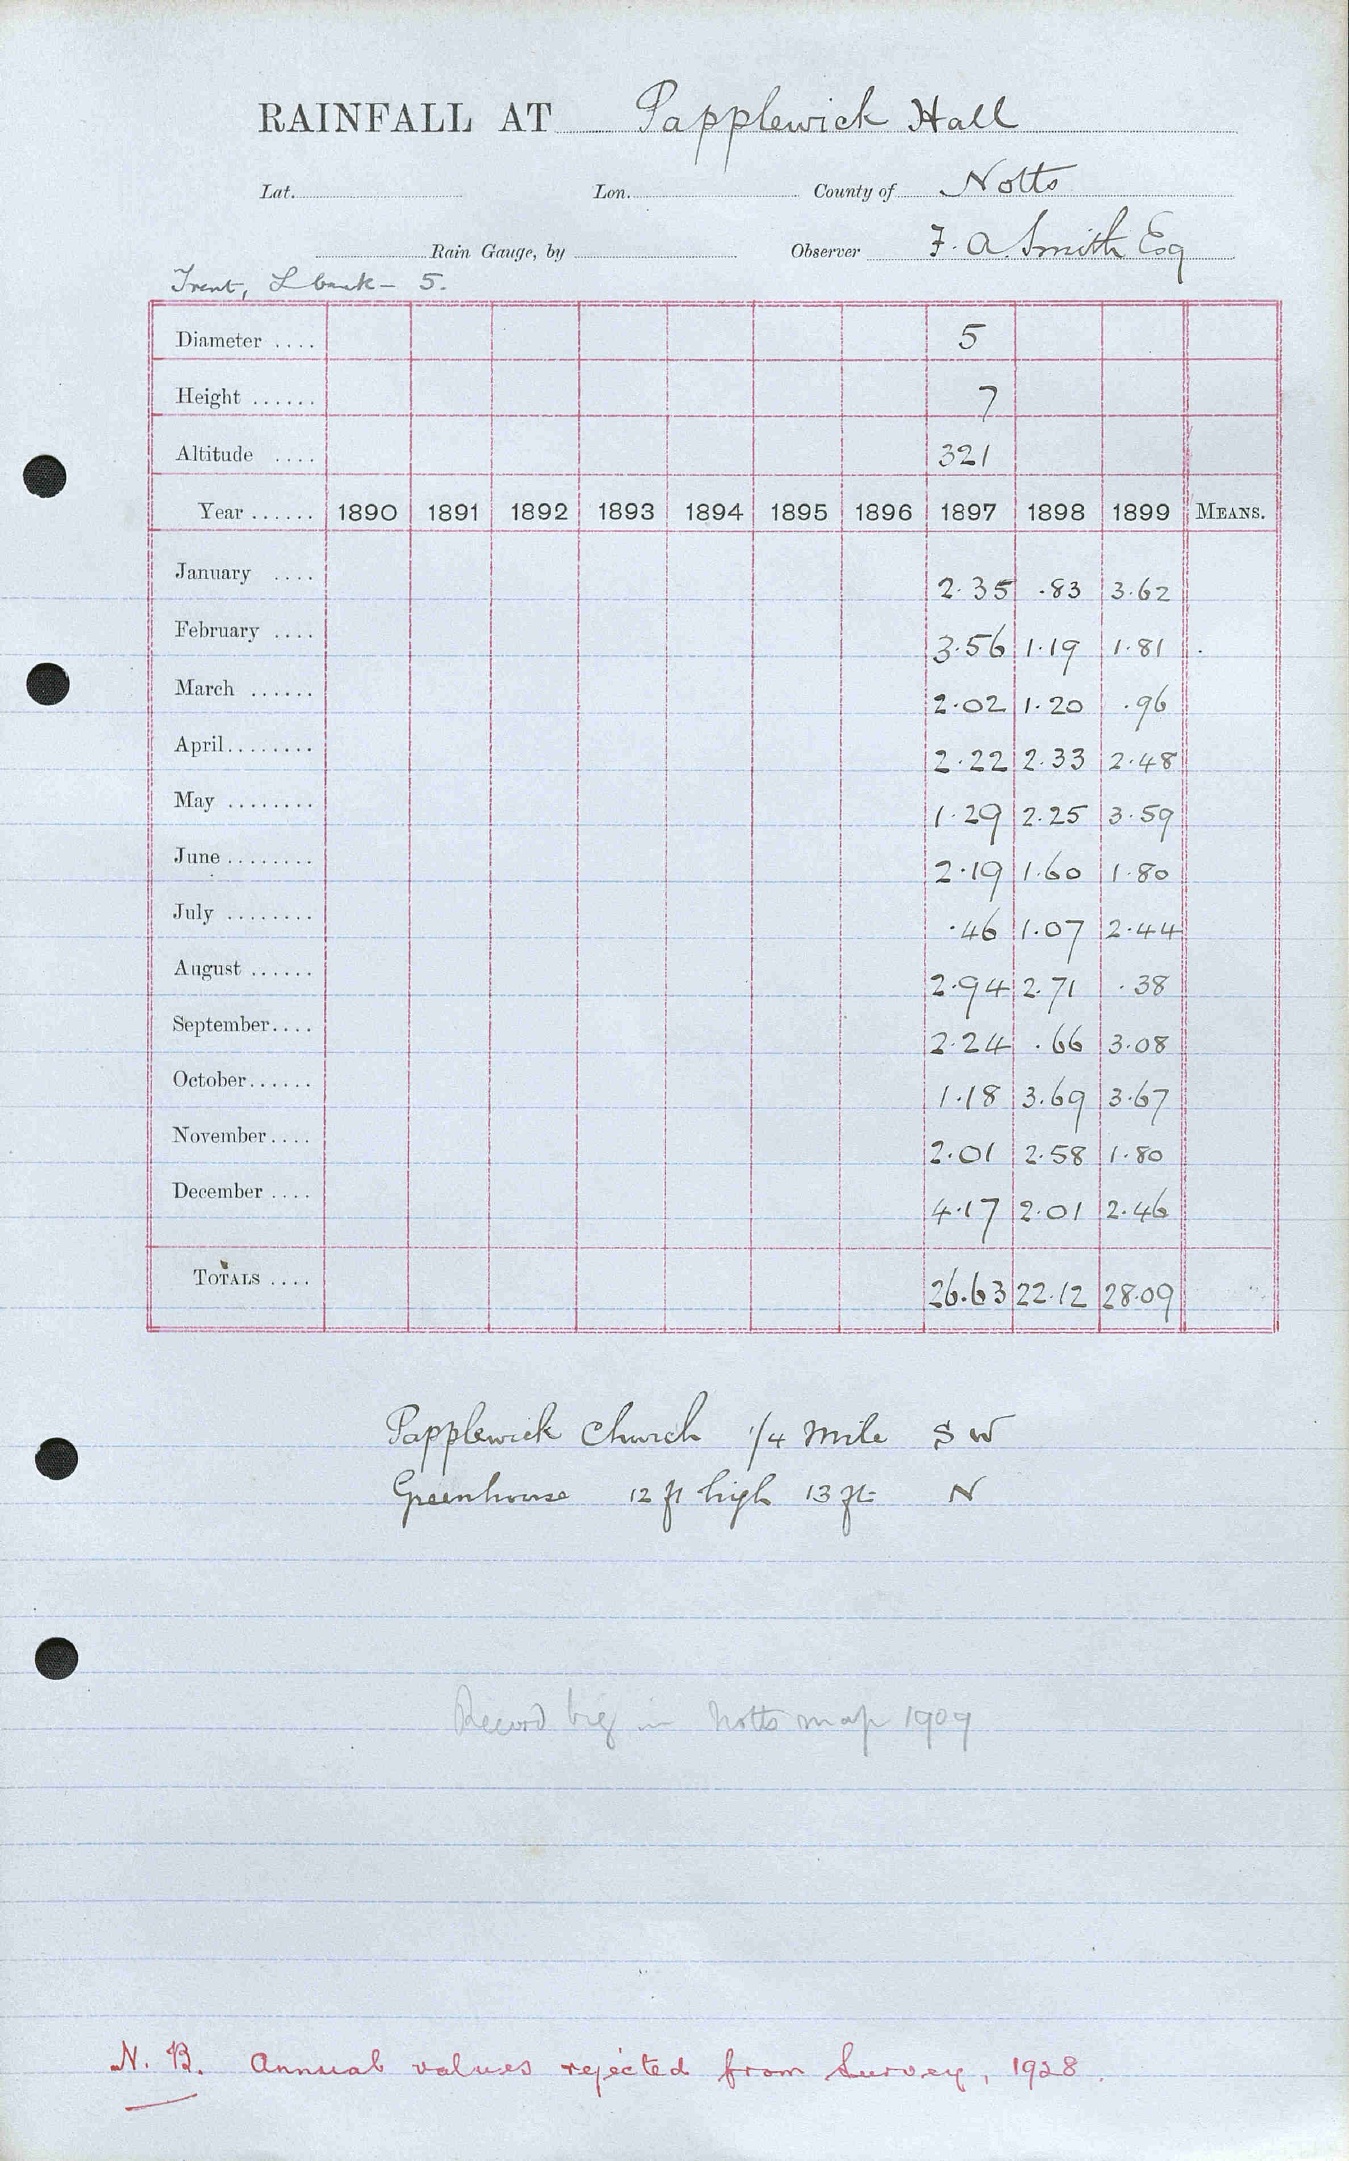 RAINFALL AT Papplewick Hall
Lat. Lon. County of Notts
Rain Gauge, by Observer F. A. Smith Esq
Trent, L bank - 5.
Diameter .... 5
Height ...... 7
Altitude .... 321
Year ...... 1890 1891 1892 1893 1894 1895 1896 1897 1898 1899 MEANS.
January .... 2.35 .83 3.62
February .... 3.56 1.19 1.81
March ...... 2.02 1.20 .96
April ........ 2.22 2.33 2.48
May ........ 1.29 2.25 3.59
June ........ 2.19 1.60 1.80
July ........ .46 1.07 2.44
August ...... 2.94 2.71 .38
September .... 2.24 .66 3.08
October ...... 1.18 3.69 3.67
November .... 2.01 2.58 1.80
December .... 4.17 2.01 2.46
TOTALS .... 26.63 22.12 28.09
Papplewick Church 1/4 Mile S W
Greenhouse 12 ft high 13 ft N
Record big in Notts map 1909
N. B. Annual values rejected from Survey, 1928.